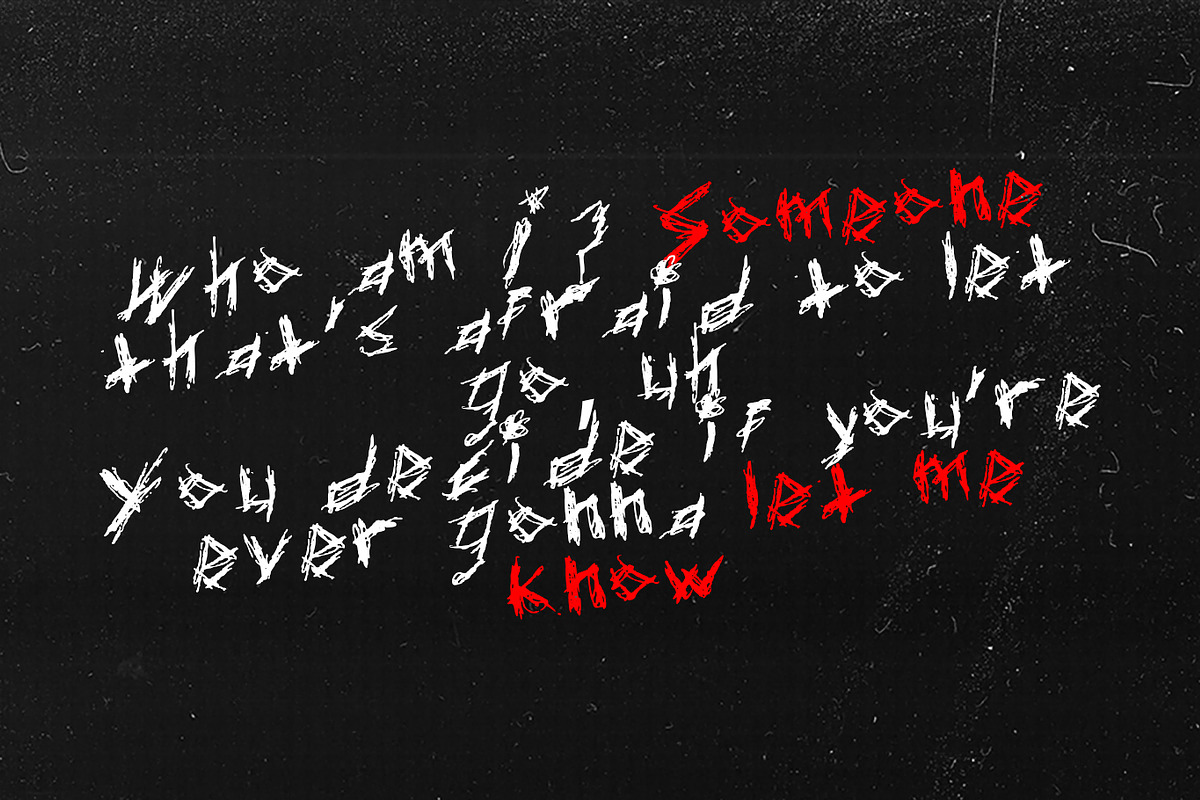 Who am i? Someone
that's afraid to let
go, uh
You decide if you're
ever gonna let me
know